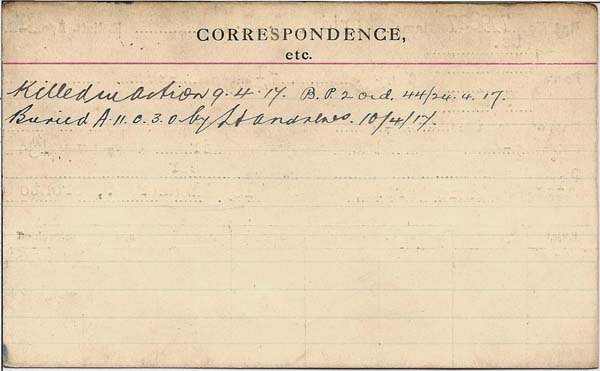 CORRESPONDENCE,
etc.
Killed in action 9.4.17. B.P.2 ord. 44/24.4.17.
Buried A 11.0.3.0 by 10/4/17.